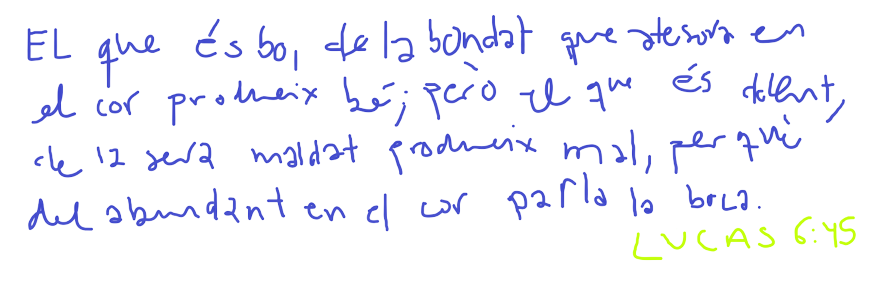 EL que és bo, de la bondat que atesora en
el cor produeix bé; però el que és dolent,
de la seva maldat produeix mal, perquè
del abundant en el cor parla la boca.
LUCAS 6:45